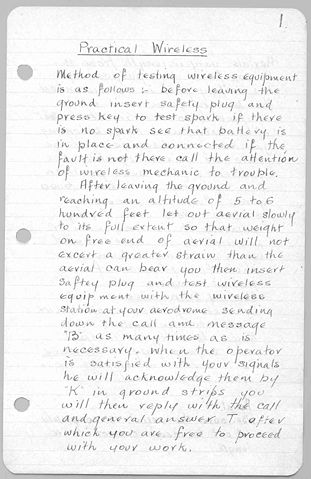 1.
Practical Wireless
Method of testing wireless equipment
is as follows:- before leaving the
ground insert safety plug and
press key to test spark if there
is no spark see that battery is
in place and connected if the
fault is not there call the attention
of wireless mechanic to trouble.
After leaving the ground and
reaching an altitude of 5 to 6
hundred feet let out aerial slowly
to its full extent so that weight
on free end of aerial will not
excert a greater strain than the
aerial can bear you then insert
saftey plug and test wireless
equipment with the wireless
station at your aerodrome sending
down the call and message
"B" as many times as is
necessary. When the operator
is satisfied with your signals
he will acknowledge them by
"K" in ground strips you
will then reply with the call
and general answer T after
which you are free to proceed
with your work.